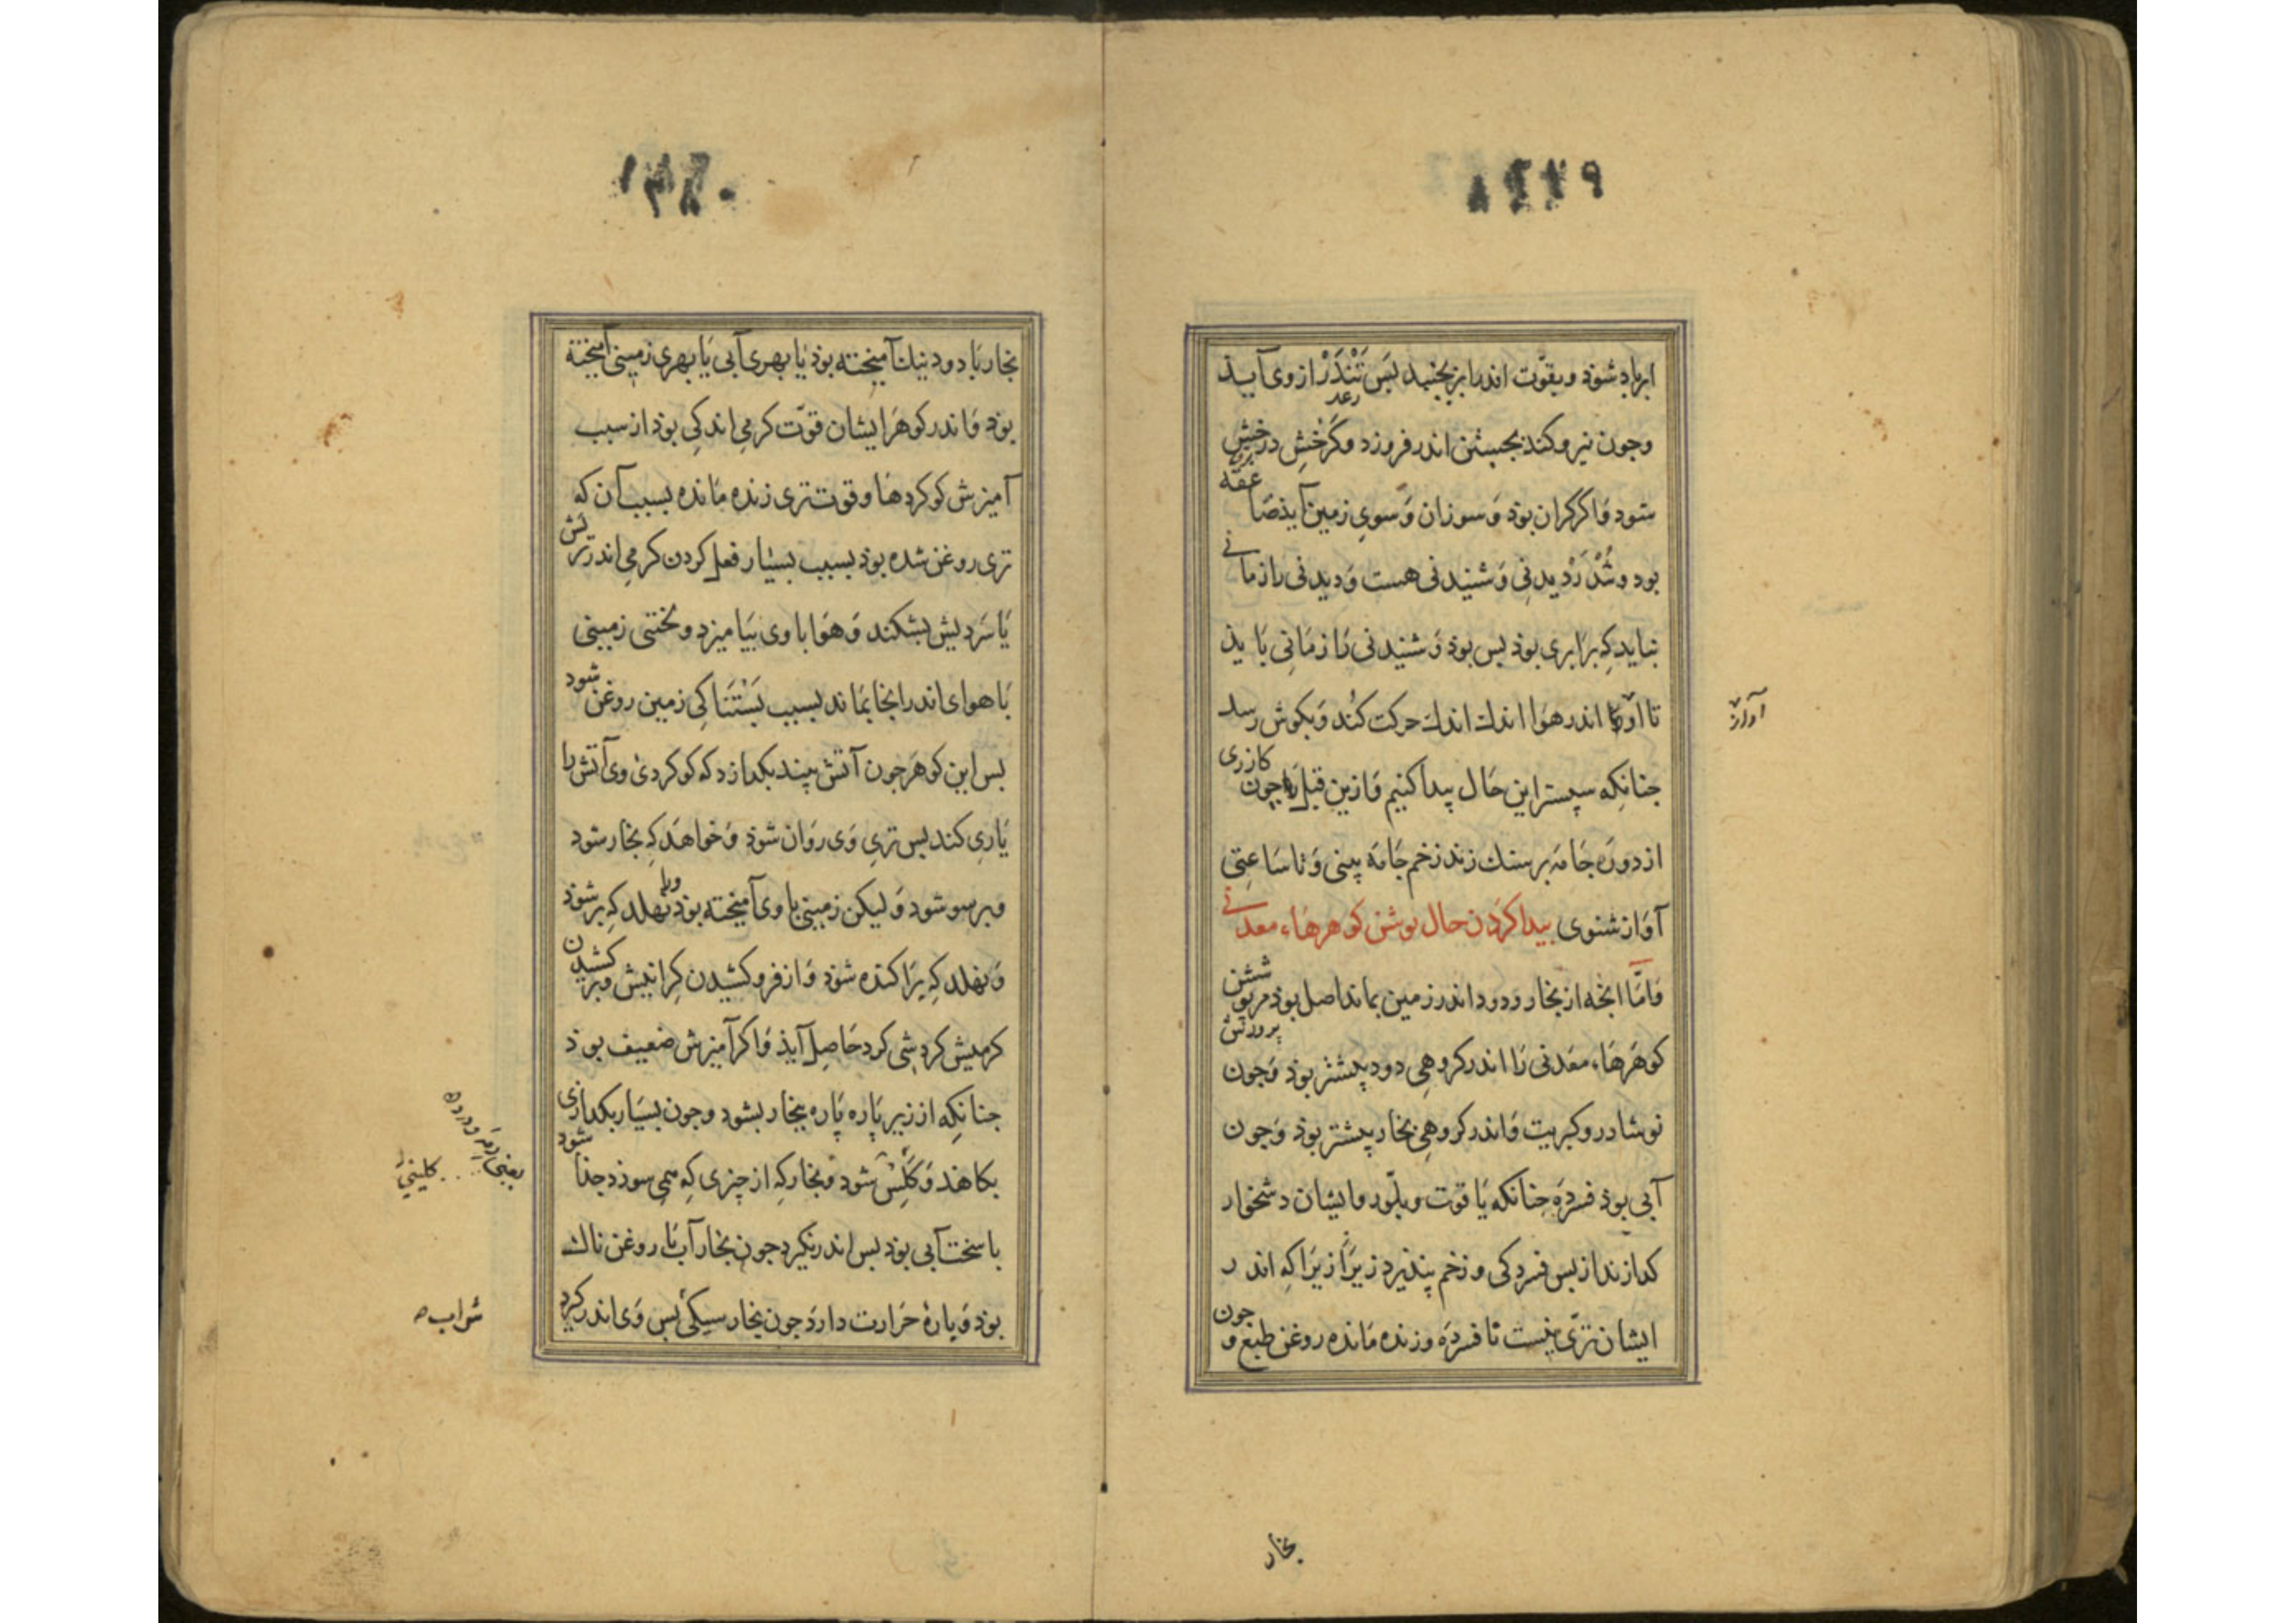 ابر باد شوذ و بقوّت اندر ابر بجنبد بس تَنْدَرْ از وی آیذ
رعد
وجون نیرو کند بجستن اندر فروزد وکَرْخش درخش
برق
شود وَاکر کران بوَذ وَسوزان وَسوی زمین آیذ صاعقه
بود وشُدْ رَدْیدنی وَشنیدنی هست وَدیدنی را زمانی
نباید کِه برَابری بوذ بس بوذ وَشنیدنی رَا زمَانی بَایذ
تا آواز اندر هوَا اندك اندك حرکت کُند وَبکوش رسد
آواز
جنانکِه سپستر این حَال پیدا کنیم وَازین قبل رَا جون کازری
از دور جَامَه بر سنك زند زخم جَامَه بینی وَتا سَاعتی
آوَاز شنوی بیدا کَردن حال بوشن کوهرهَاءِ معدنی
وَامَّا انجه از بخار ودود اندر زمین بماند اصل بوذ مر بوشش
پرورش
کوهَرهَاءِ معَدنی رَا اندر کروهی دود بیشتر بوذ وَجون
نوشادر وکبریت وَاندر کروهی بخار بیشتر بوذ وَجون
آبی بوذ فسرَده جنانکه یَاقوت وبلّور وایشان دشخوار
کدازند از بس فسردکی وزخم پنذیرد زیرَا زیرَا کِه اندر
ایشان ترّی نیست تا فسرَده وزنده مَانده روغن طبع وجون
بخار
بخار بَا دود نیك آمیخته بوذ یَا بهری آبی یَا بهری زمینی آمیخته
بوذ وَاندر کوهَر ایشان قوّت کرمی اندکی بوذ از سبب
آمیزش کوکردهَا وقوت تری زنده مَانده بسبب آن که
تری روغن شده بوذ بسبب بسیار فعل کردن کرمی اندر تریش
یَا سَردیش بشکند وَهوَا باوی بیَامیزد ولختی زمینی
بَا هوای اندر انجا بمَاند بسبب بَسْتنَاکی زمین روغن شود
بس این کوهَر جون آتش بیند بکدازد که کوکردی وی آتش را
یَاری کند بس تری وَی روَان شوَذ وَخواهَد کِه بخار شود
وبر سو شود وَلیکن زمینی باوی آمیخته بوذ ورا نهلد کِه بر شوذ
وَنهلد کِه پرَاکنده شوَذ وَاز فروکشیدن کرَانیش وبر کشیدن
کرمیش کردشی کرد حَاصِل آیذ وَاکر آمیزش ضعیف بوذ
جنانکِه ارزیز پَاره پَاره بخار بشود وجون بسیَار بکدازی
بکاهَند وَکَلِس شود وَبخار کِه از چیزی کِه همی سوزد جدا شود
یعنی ریم ودرده
کلینی
یا سخت آبی بوذ بس اندر نکیرد جون بخار آب یَا روغن ناك
بوذ وَپارهٔ حرَارت دارَد جون بخار سیکی بس وَی اندر کیرد
شراب